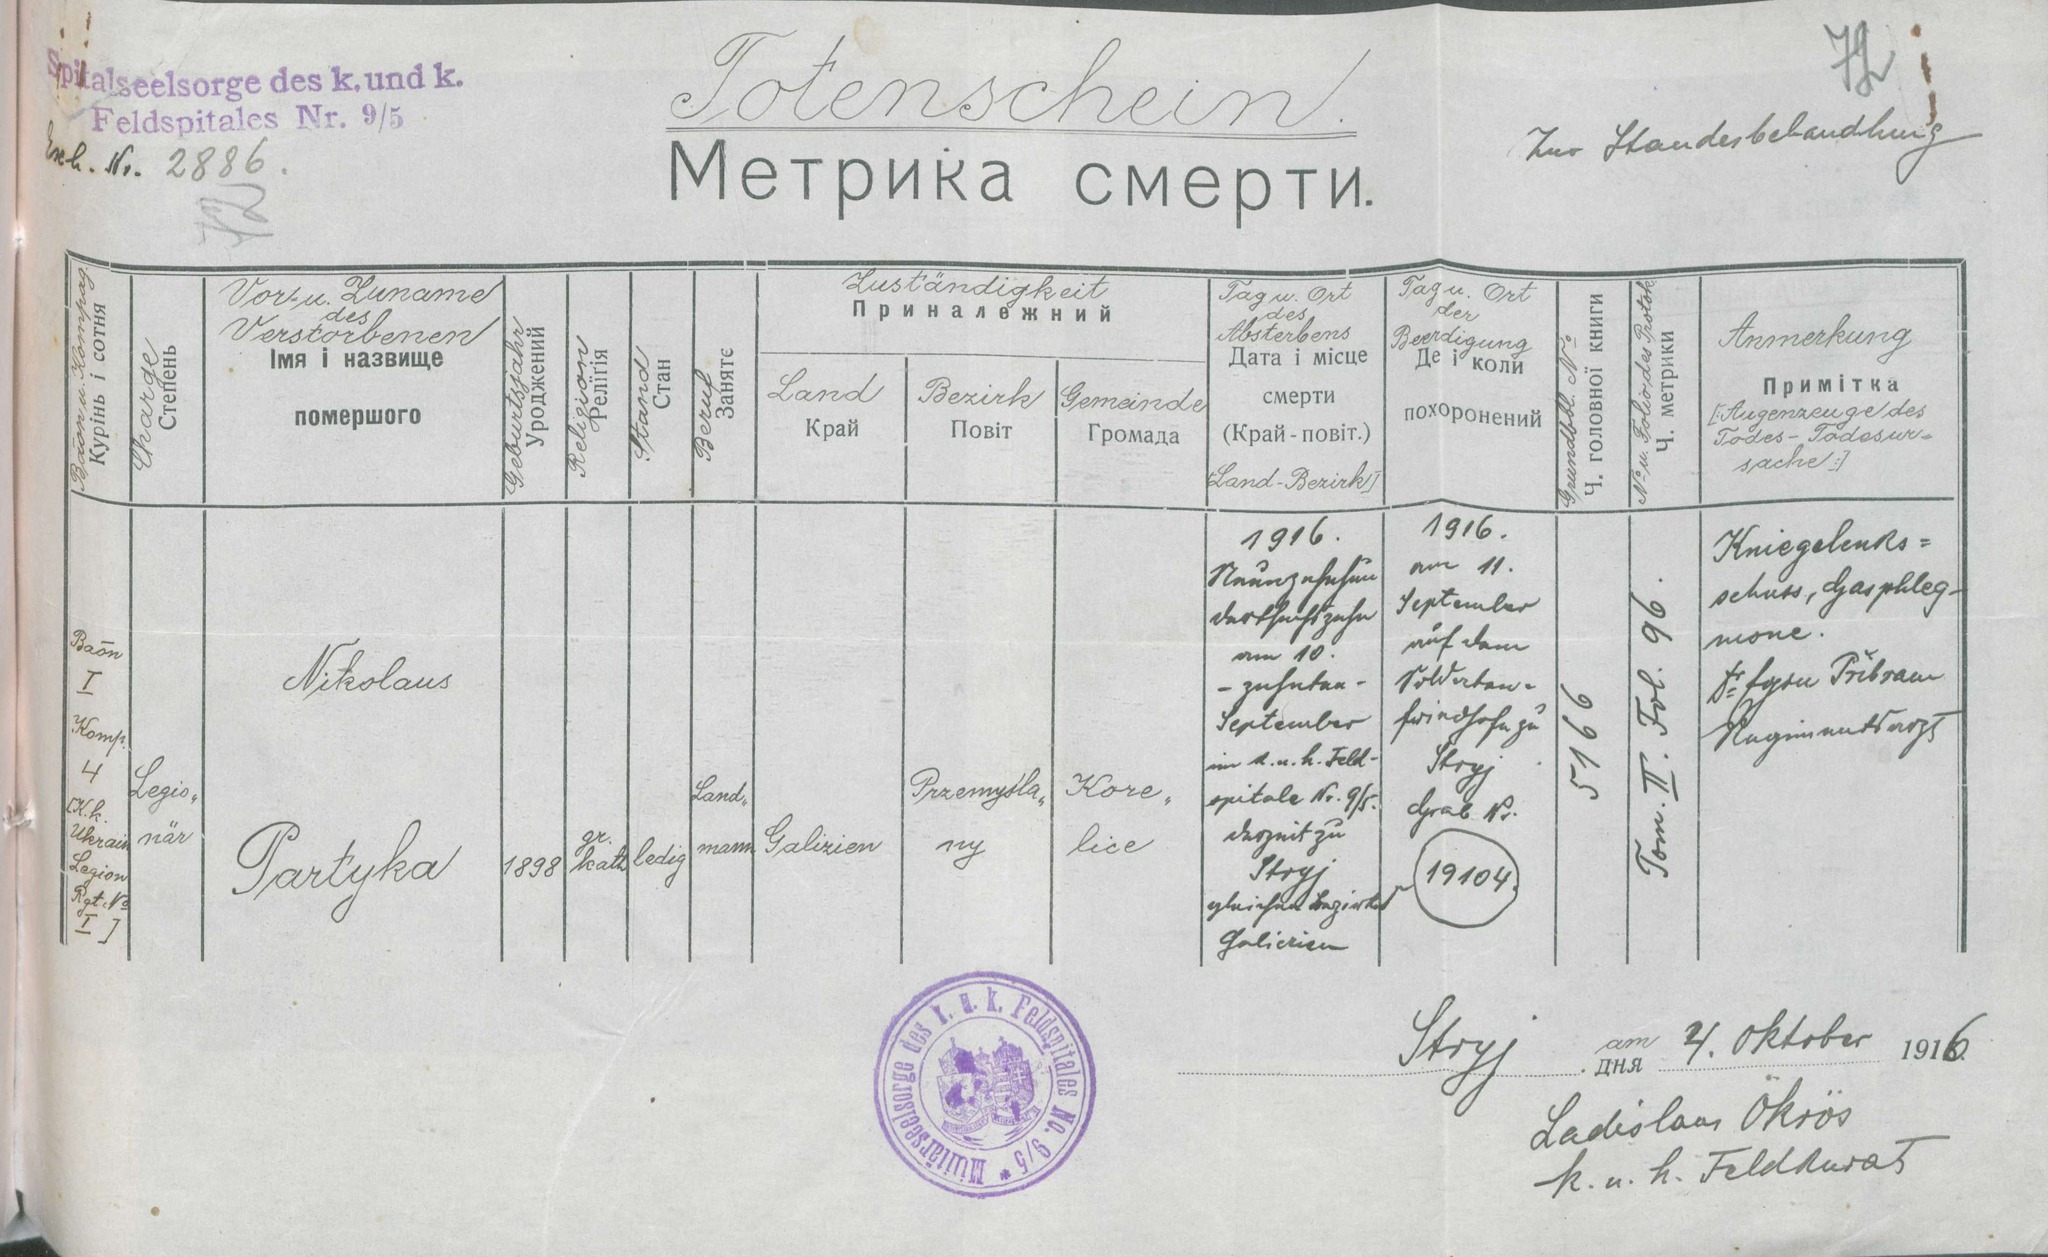 Spitalseelsorge des k. und k.
Feldspitales Nr. 9/5
Exh. Nr. 2886.
72
Totenschein.
Метрика смерти.
72
Zur Standesbehandlung
Baon u. Kompag.
Курінь і сотня
Charge
Степень
Vor- u. Zuname
des
Verstorbenen
Імя і назвище
померлого
Geburtsjahr
Уроджений
Religion
Релігія
Stand
Стан
Beruf
Занятє
Zuständigkeit
Приналежний
Land
Край
Bezirk
Повіт
Gemeinde
Громада
Tag u. Ort
des
Absterbens
Дата і місце
смерти
(Край-повіт.)
[Land-Bezirk]
Tag u. Ort
der
Beerdigung
Де і коли
похоронений
Grundbbl. No
Ч. головної книги
No u. Folio des Protok.
Ч. метрики
Anmerkung
Примітка
[:Augenzeuge des
Todes-Todesur-
sache:]
Baon
I
Komp.
4
[K.k.
Ukrain
Legion
Rgt. No
I]
Legio„
när
Nikolaus
Partyka
1898
gr.
kath
ledig
Land„
mann
Galizien
Przemysla„
ny
Kore„
lice
1916.
Neunzehnhun
dertsechszehn
am 10.
- zehnten -
September
im k. u. k. Feld-
spitale Nr. 9/5.
derzeit zu
Stryj
gleichen Bezirkes
Galizien
1916.
am 11.
September
auf dem
Soldaten-
friedhofe zu
Stryj.
Grab Nr.
19104.
5166
Tom. II. Fol. 96.
Kniegelenks=
schuss, Gasphleg-
mone.
Dr Egon Přibram
Regimentsarzt
Militärseelsorge des k. u. k. Feldspitales No. 9/5 *
Stryj am дня 4. Oktober 1916.
Ladislaus Ökrös
k. u. k. Feldkurat